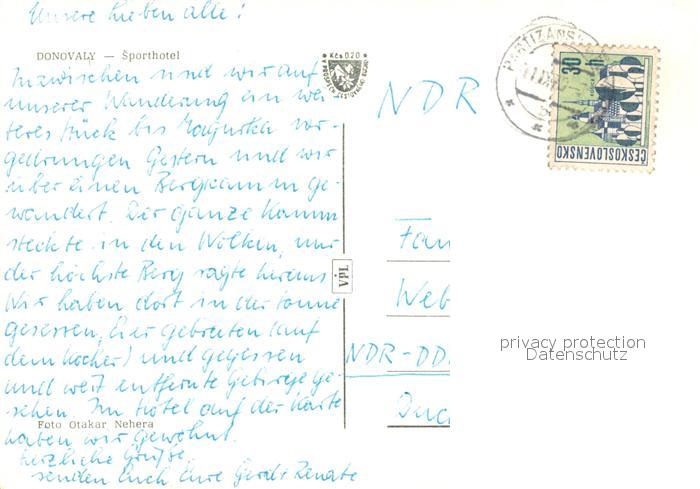 Unsere Lieben alle!
DONOVALY — Športhotel
Inzwischen sind wir auf
unserer Wanderung ein wei-
teres Stück bis Magurka vor-
gedrungen Gestern sind wir
über einen Bergkamm ge-
wandert. Der ganze Kamm
steckte in den Wolken, nur
der höchste Berg ragte heraus
Wir haben dort in der Sonne
gesessen, Eier gebraten (auf
dem Kocher) und gegessen
und weit entfernte Gebirge ge-
sehen. Im Hotel auf der Karte
Foto Otakar Nehera
haben wir gewohnt.
Herzliche Grüße
senden Euch Eure Gerd + Renate
Kčs 0,20
VPL
NDR
PARTIZÁNSK
30 h
ČESKOSLOVENSKO
Fam
Web
NDR-DD
privacy protection
Datenschutz